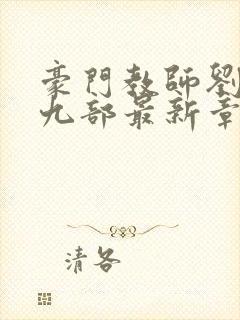 豪門教師劉
九部最新章
清各